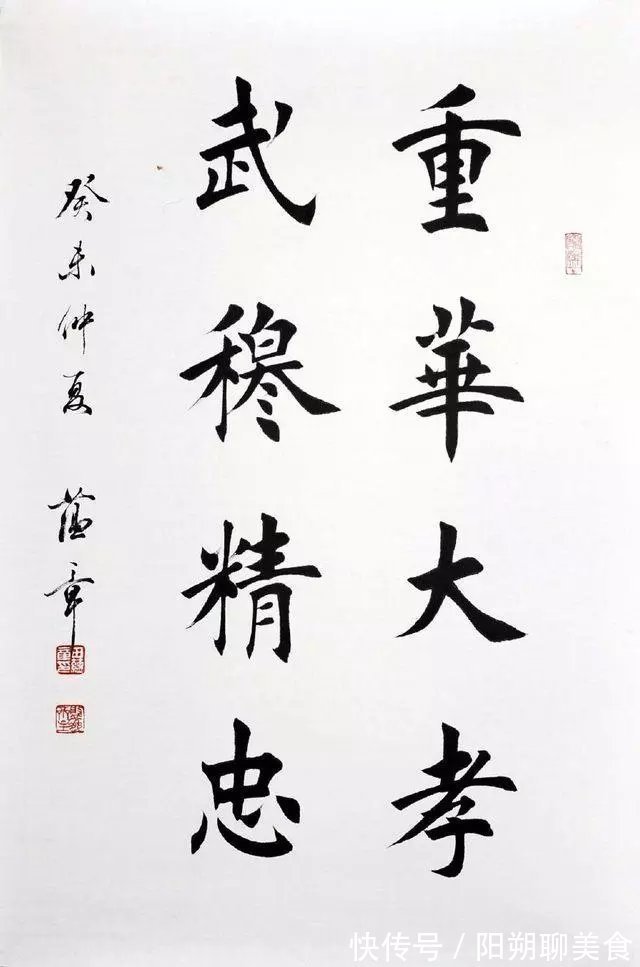 重華大孝
武穆精忠
癸未仲夏 蘊章
快传号/阳朔聊美食